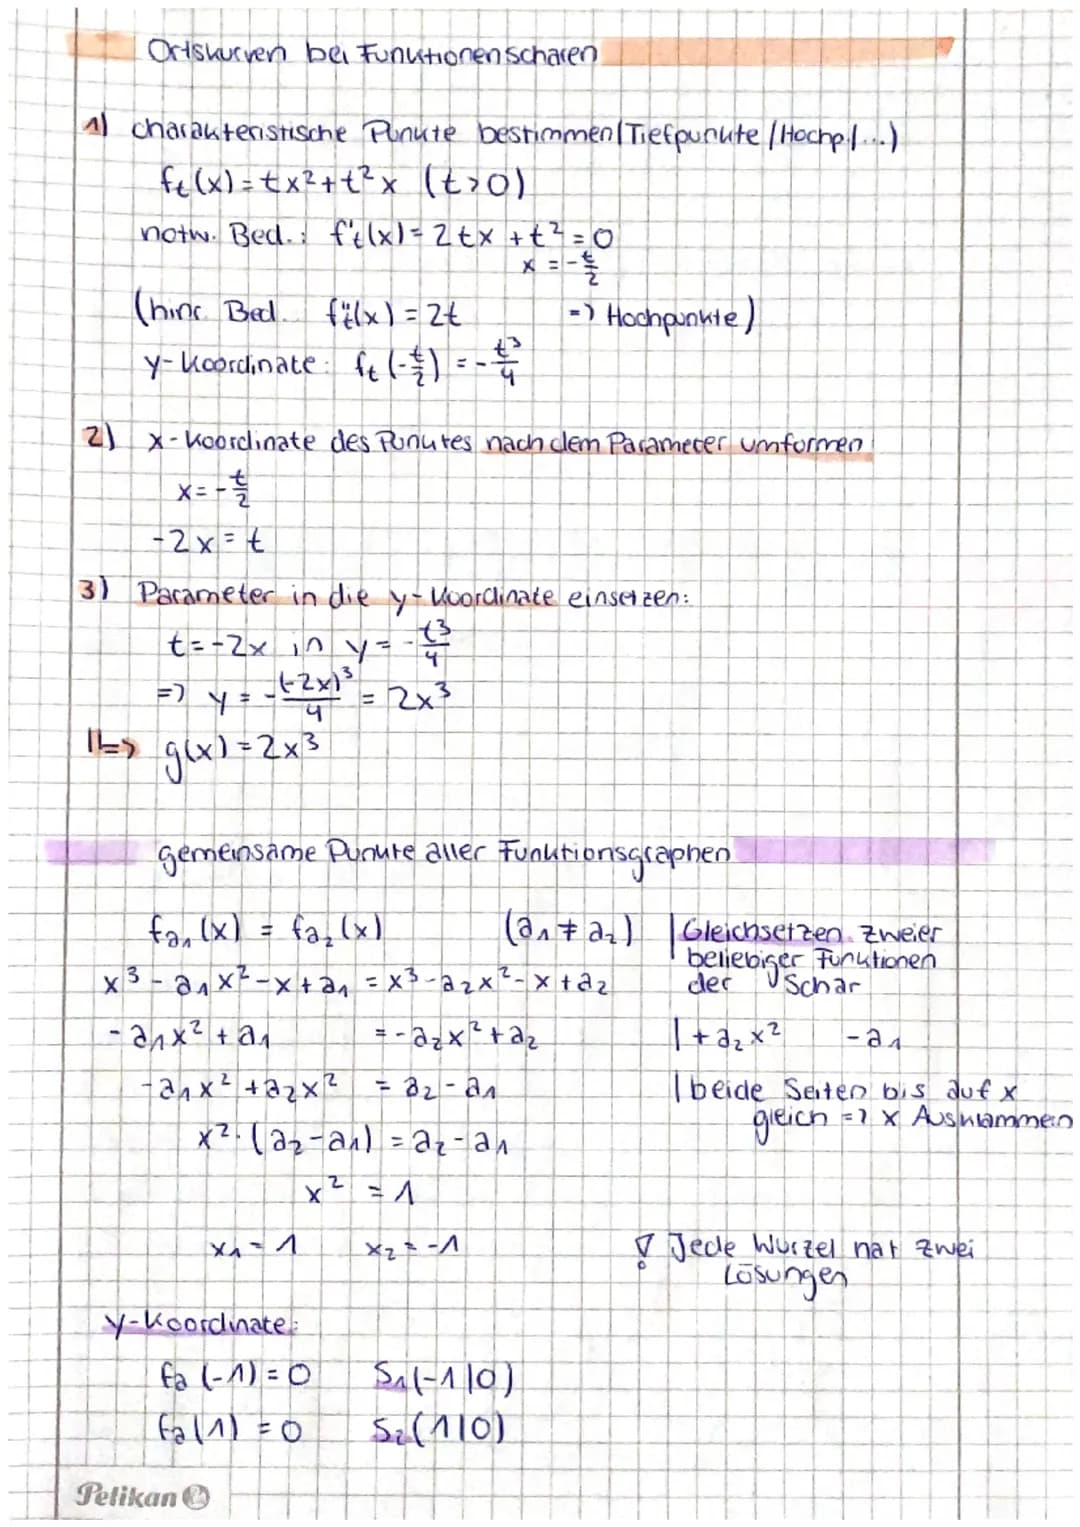 Ortskurven bei Funktionenscharen
1) charakteristische Punkte bestimmen (Tiefpunkte / Hochp. / ...)
fₜ(x) = tx² + t²x (t>0)
notw. Bed.: f'ₜ(x) = 2tx + t² = 0
x = -t/2
(hinr. Bed. f''ₜ(x) = 2t => Hochpunkte)
y-Koordinate: fₜ(-t/2) = -t³/4
2) x-Koordinate des Punktes nach dem Parameter umformen
x = -t/2
-2x = t
3) Parameter in die y-Koordinate einsetzen:
t = -2x in y = -t³/4
=> y = -(-2x)³/4 = 2x³
|⊢> g(x) = 2x³
gemeinsame Punkte aller Funktionsgraphen
fa₁(x) = fa₂(x) (a₁ ≠ a₂) | Gleichsetzen zweier
beliebiger Funktionen
x³ - a₁x² - x + a₁ = x³ - a₂x² - x + a₂ der Schar
-a₁x² + a₁ = -a₂x² + a₂ | + a₂x² - a₁
-a₁x² + a₂x² = a₂ - a₁ | beide Seiten bis auf x
gleich => x Ausklammern
x² · (a₂ - a₁) = a₂ - a₁
x² = 1
x₁ = 1 x₂ = -1 ! Jede Wurzel hat zwei
Lösungen
y-Koordinate:
fa(-1) = 0 S₁(-1|0)
fa(1) = 0 S₂(1|0)
Pelikan